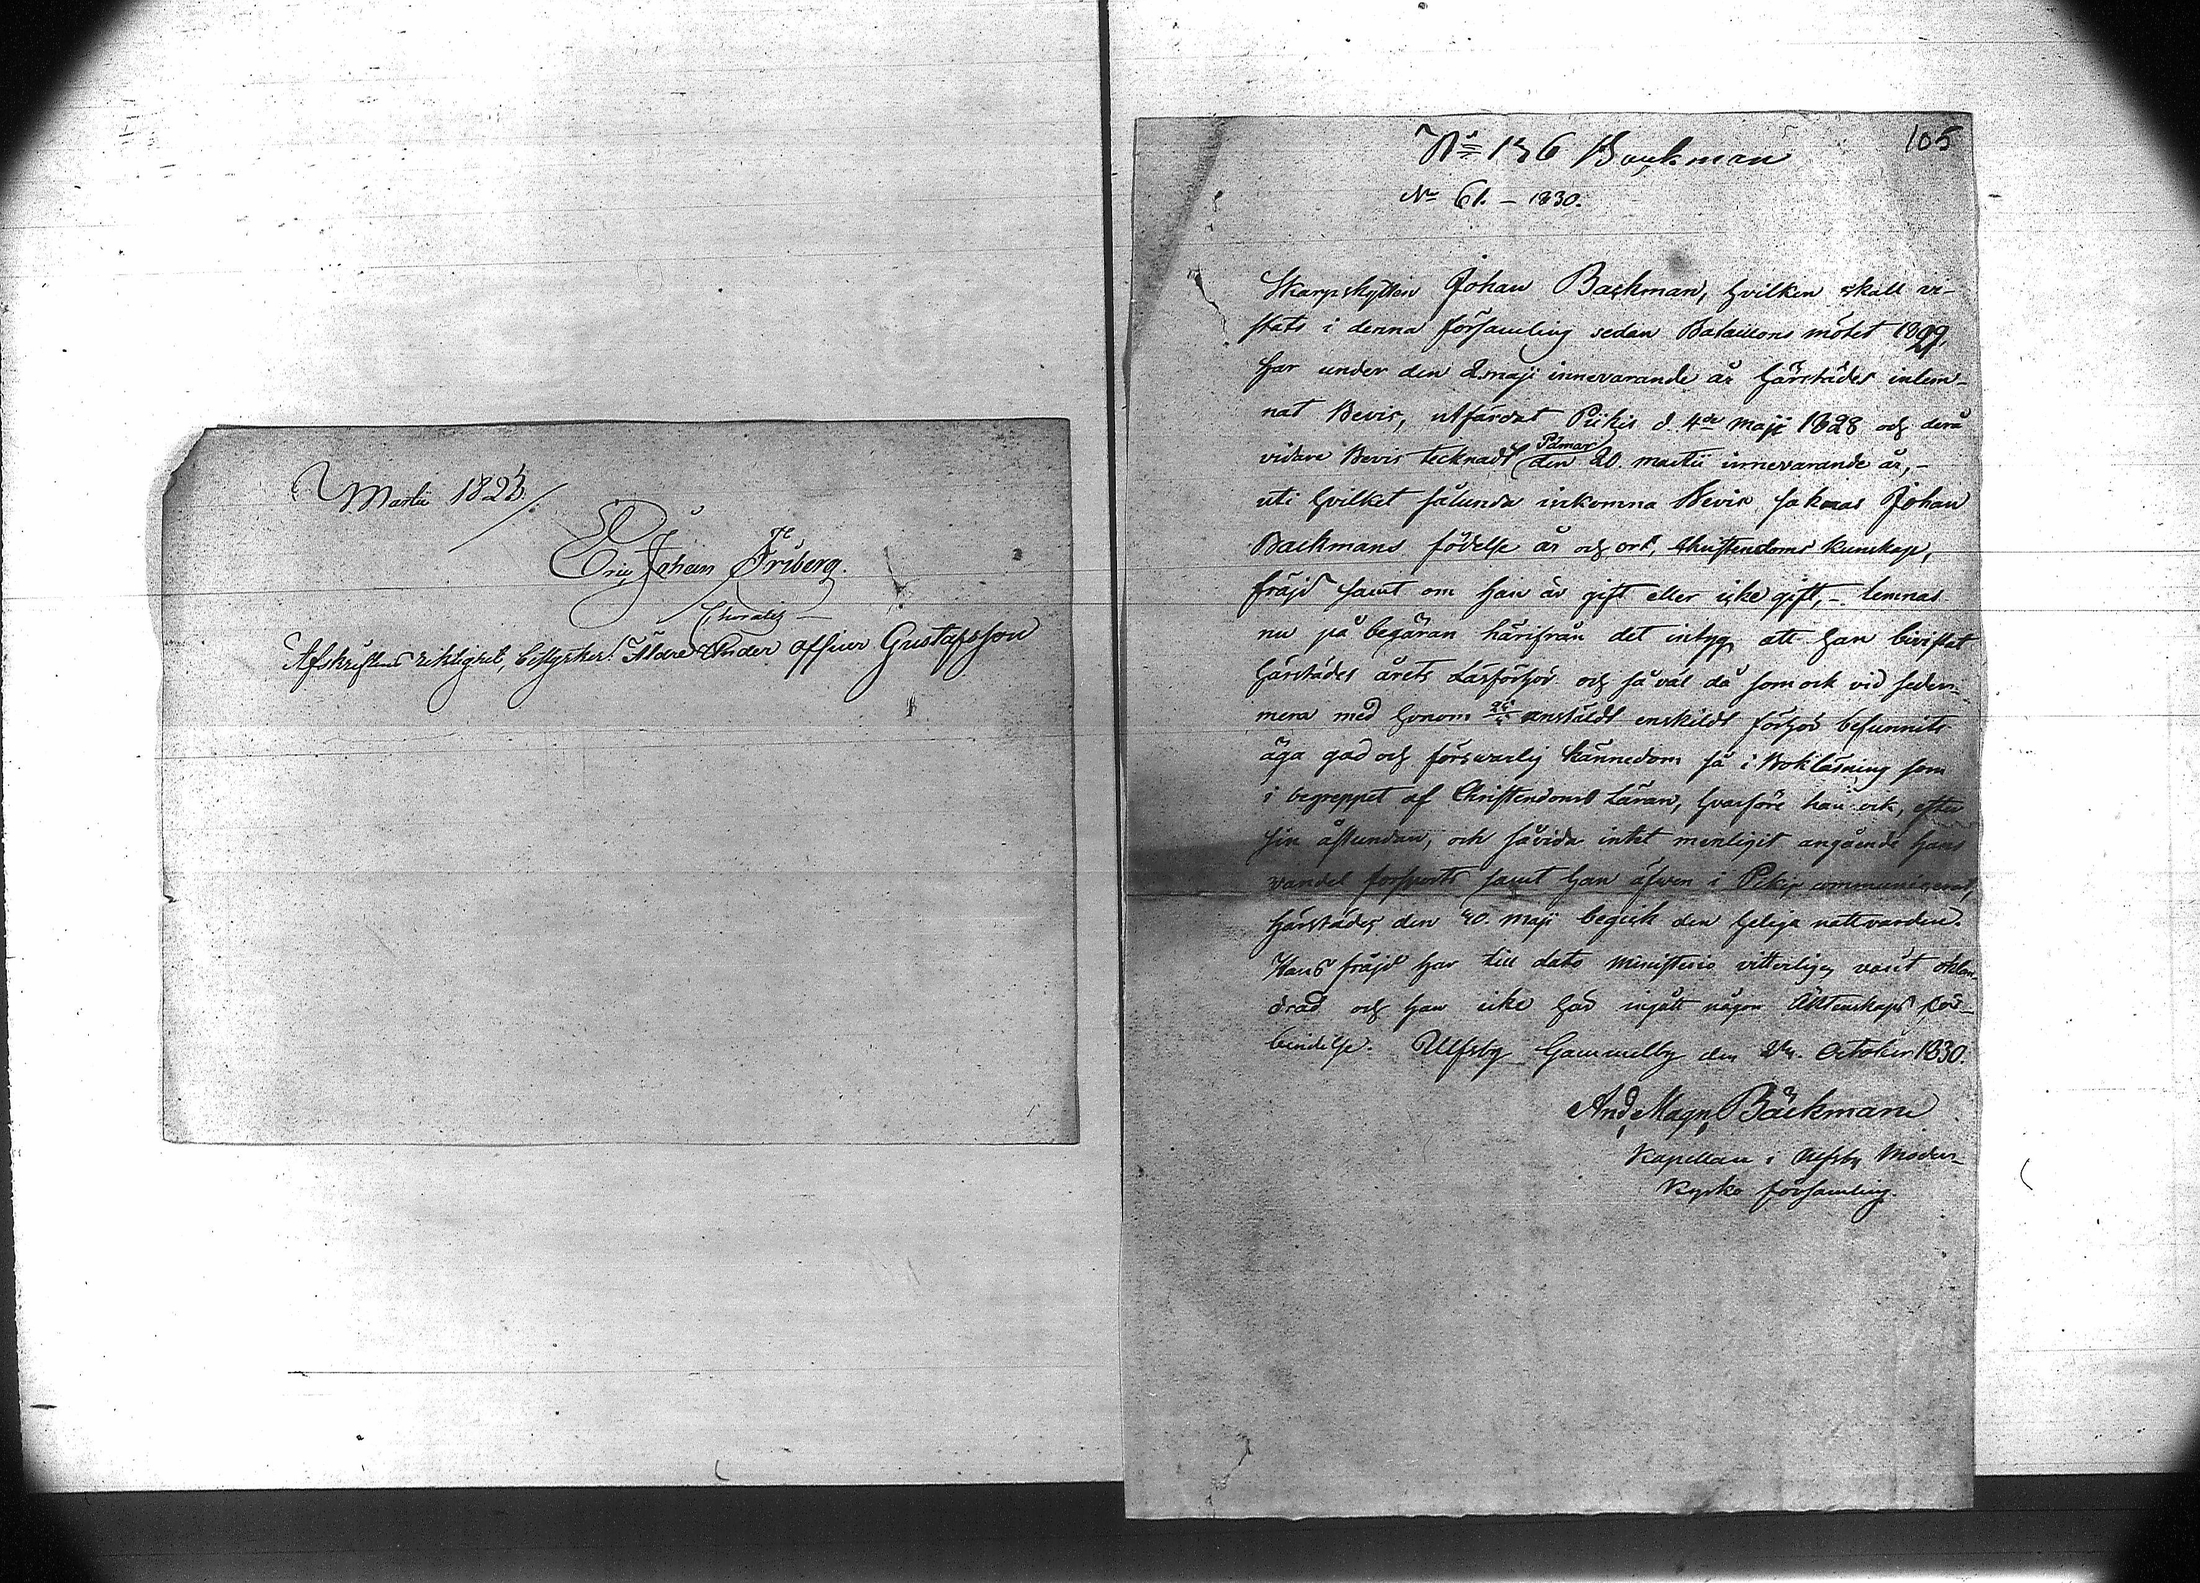 Martii 1823.
Eric Johan Friberg.
Afskriftens riktighet, bestyrker. Äldre Under officer Gustafsson
105
No 136 Backman
No 61. – 1830.
Skarpskytten Johan Backman, hvilken skall vi-
stats i denna församling sedan Bataillons mötet 1829,
har under den 2 maji innevarande år härstädes inlem-
nat Bevis, utfärdat Piikis d. 4de maji 1828 och derå
vidare Bevis tecknadt Pämar den 20. martii innevarande år, –
uti hvilket sålunda inkomna Bevis saknas Johan
Backmans födelse år och ort, Christendoms kunskap,
fräjd samt om han är gift eller icke gift, – lemnas
nu på begäran härifrån det intyg att han bevistat
härstädes årets Läsförhör och så väl då som ock vid seder-
mera med honom anstäldt enskildt förhör befunnits
äga god och försvarlig kännedom så i Bokläsning som
i begreppet af Christendoms Läran, hvarföre han ock, efter
sin åstundan, och såvida intet menligit angående hans
vandel försports samt han äfven i Pikis communicerat,
härstädes den 30. maji begick den heliga nattvarden.
Hans fräjd har till dato Ministerio vitterligen varit oklan-
drad och han icke häd ingått någon Äktenskaps för-
bindelse. Ulfsby Gammelby den October 1830.
And. Magn. Bäckman
Kapellan i Ulfsby Moder-
Kyrko församling.